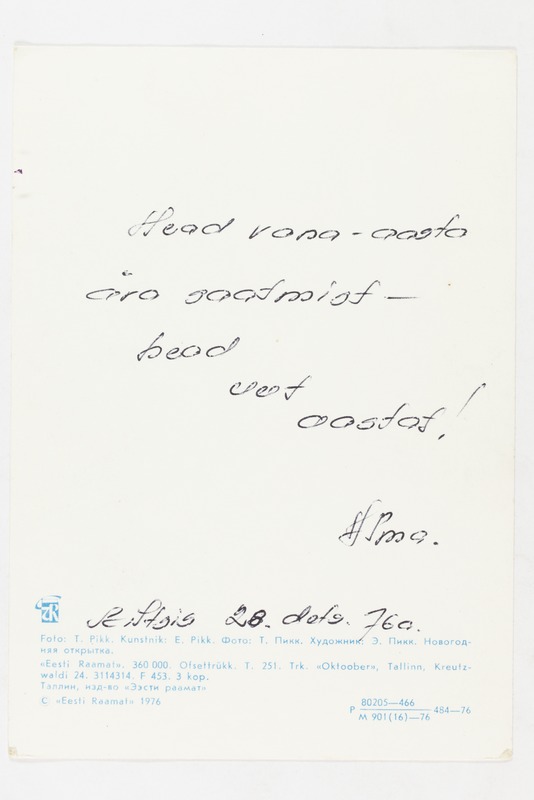 Head vana-aasta
ära saatmist —
head
uut
aastat!
Alma.
28. dets. 76a.
Foto: T. Pikk. Kunstnik: E. Pikk. Фото: Т. Пикк. Художник Э. Пикк. Новогод-
няя открытка.
«Eesti Raamat». 360 000. Ofsettrükk. T. 251. Trk. «Oktoober», Tallinn, Kreutz-
waldi 24. 3114314. F 453. 3 kop.
Таллин, изд-во «Ээсти раамат»
© «Eesti Raamat» 1976
Р 80205—466
М 901(16)—76 484—76